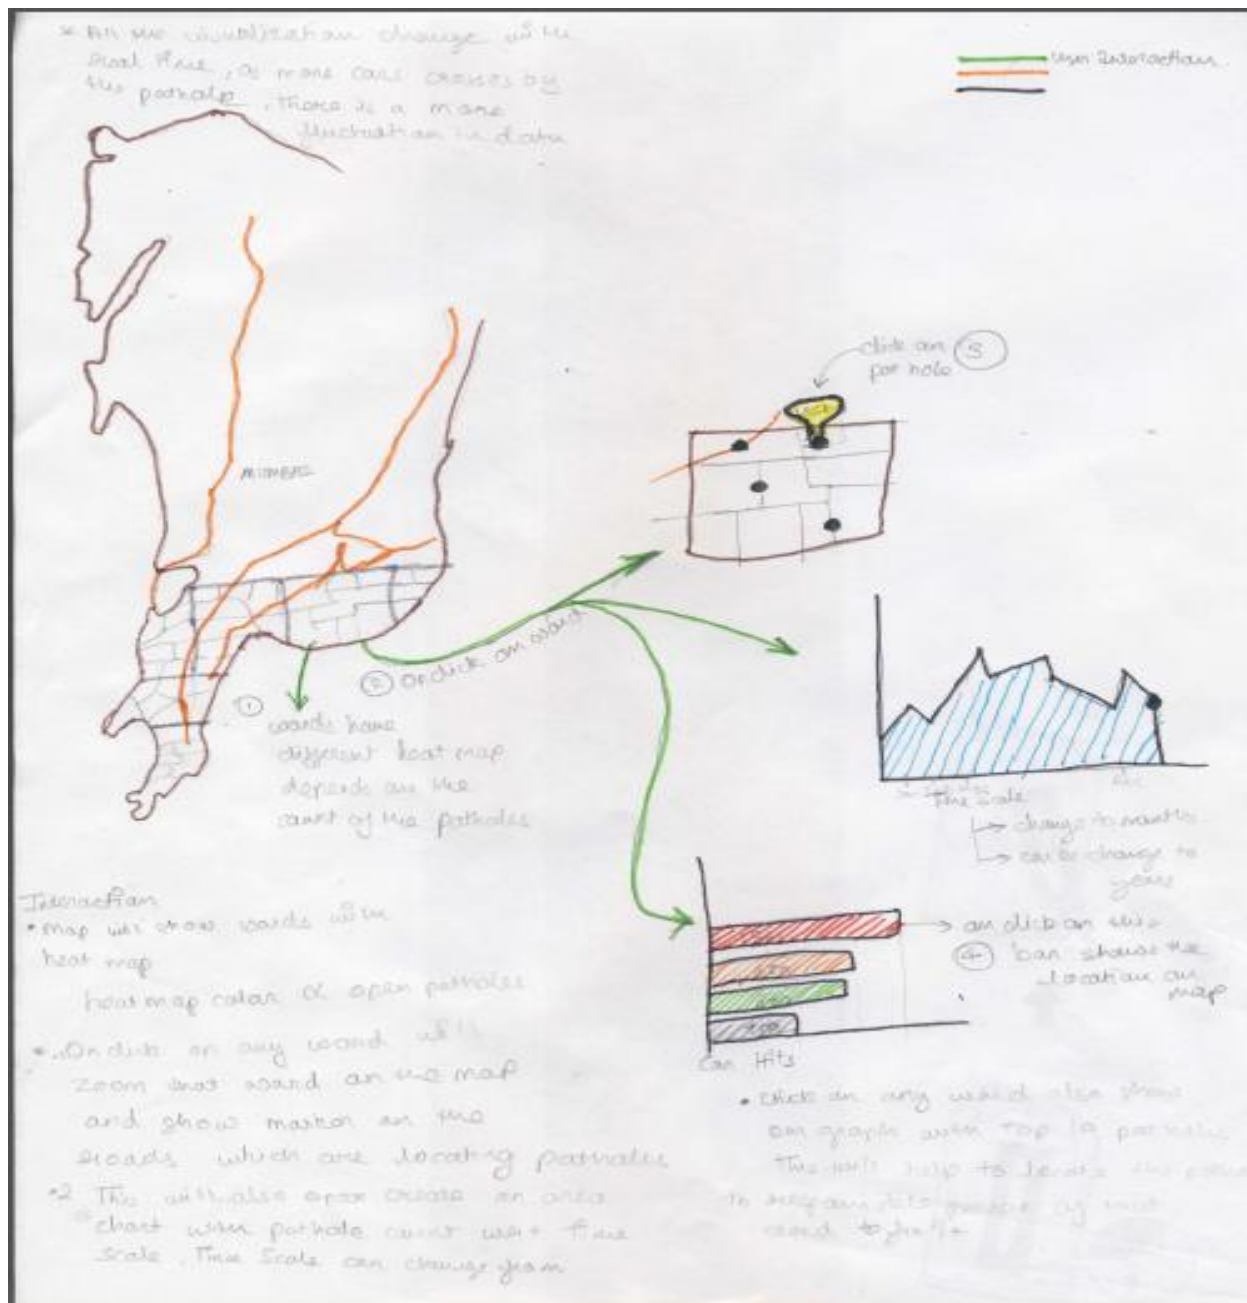 * All the visualization change with
real time, as more cars crosses by
the pothole, there is a more
fluctuation in data
User Interaction
MUMBAI
click on
pot hole
3
2 On click on ward
1
wards have
different heat map
depends on the
count of the potholes
Time Scale
change to months
can be change to
years
on click on this
4 bar shows the
location on
map
Car Hits
Interaction
• Map will show wards with
heat map
heat map color ∝ open potholes
• On click on any ward will
zoom that ward on the map
and show marker on the
roads which are locating potholes
• 2 This will also open create an area
chart with pothole count w.r.t time
scale. Time Scale can change from
• click on any ward also show
on graph with top 10 potholes
This will help to locate the
to responsible of that
ward to